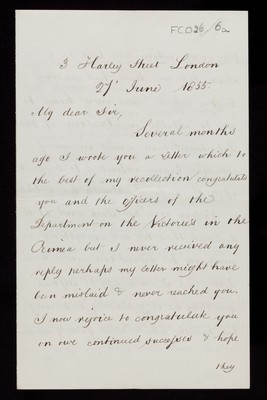 FCO26/6a
3 Harley Street London
27' June 1855
My dear Sir,
Several months
ago I wrote you a letter which to
the best of my recollection congratulated
you and the officers of the
Department on the Victories in the
Crimea but I never received any
reply perhaps my letter might have
been mislaid & never reached you.
I now rejoice to congratulate you
on our continued successes & hope
they